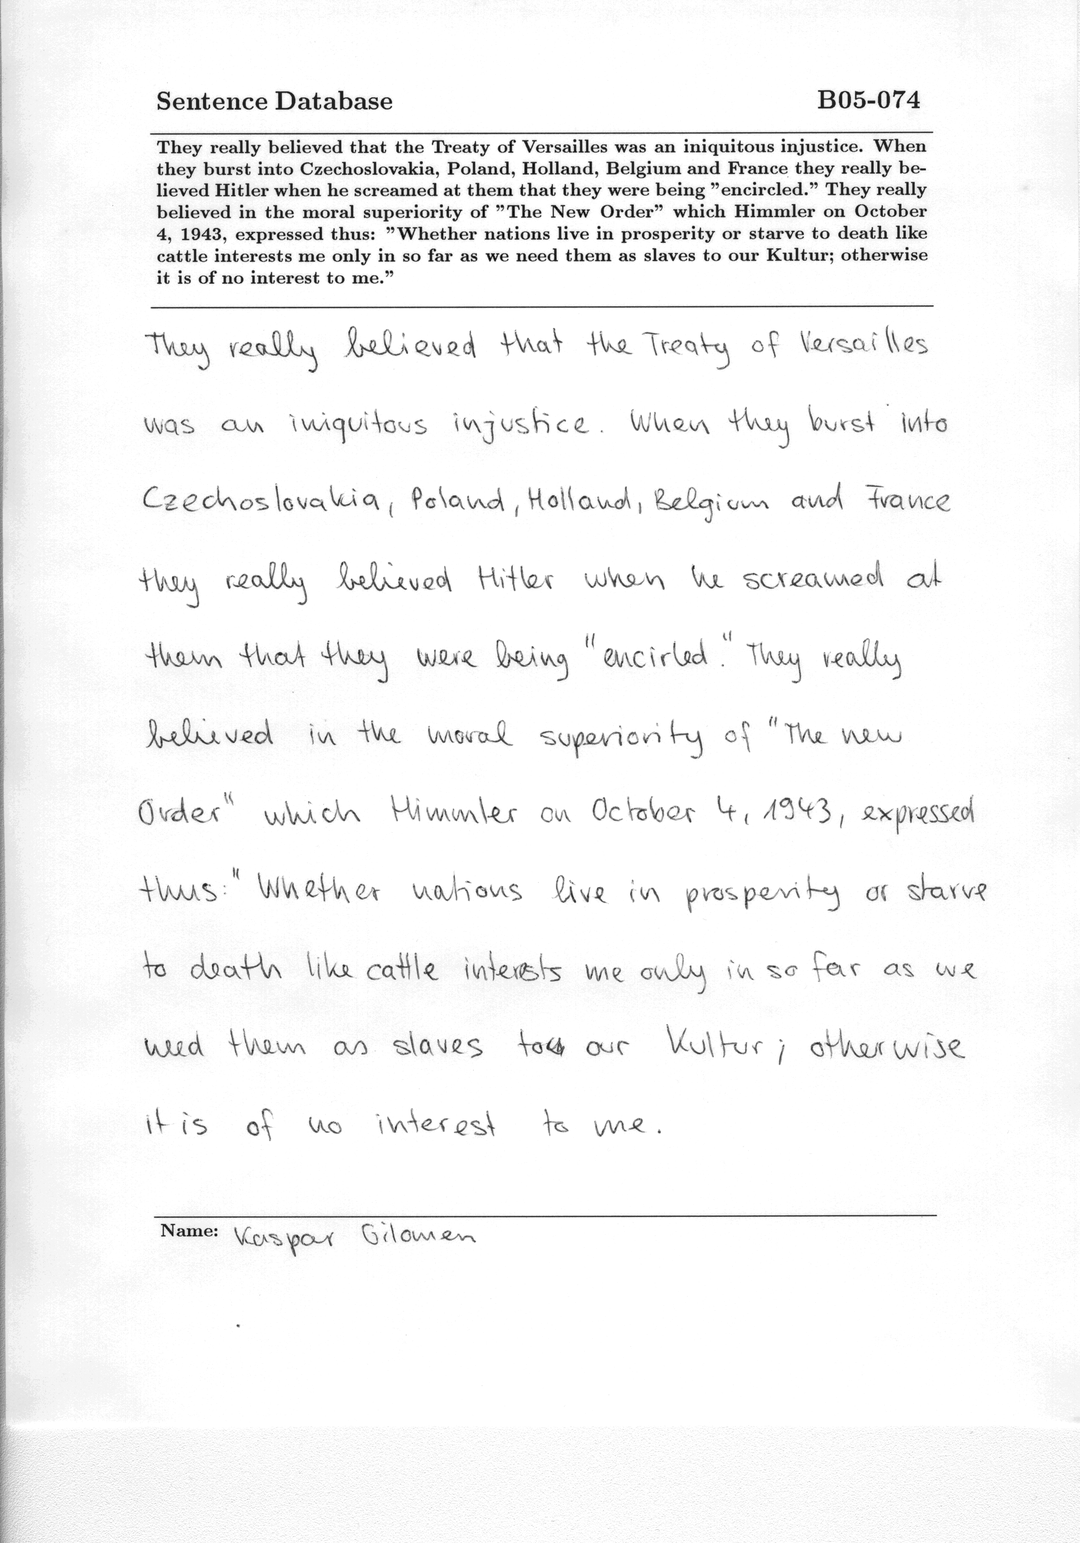 Sentence Database B05-074
They really believed that the Treaty of Versailles was an iniquitous injustice. When
they burst into Czechoslovakia, Poland, Holland, Belgium and France they really be-
lieved Hitler when he screamed at them that they were being "encircled." They really
believed in the moral superiority of "The New Order" which Himmler on October
4, 1943, expressed thus: "Whether nations live in prosperity or starve to death like
cattle interests me only in so far as we need them as slaves to our Kultur; otherwise
it is of no interest to me."
They really believed that the Treaty of Versailles
was an iniquitous injustice. When they burst into
Czechoslovakia, Poland, Holland, Belgium and France
they really believed Hitler when he screamed at
them that they were being "encirled." They really
believed in the moral superiority of "The new
Order" which Himmler on October 4, 1943, expressed
thus: "Whether nations live in prosperity or starve
to death like cattle interests me only in so far as we
need them as slaves to our Kultur; otherwise
it is of no interest to me.
Name: Kaspar Gilomen